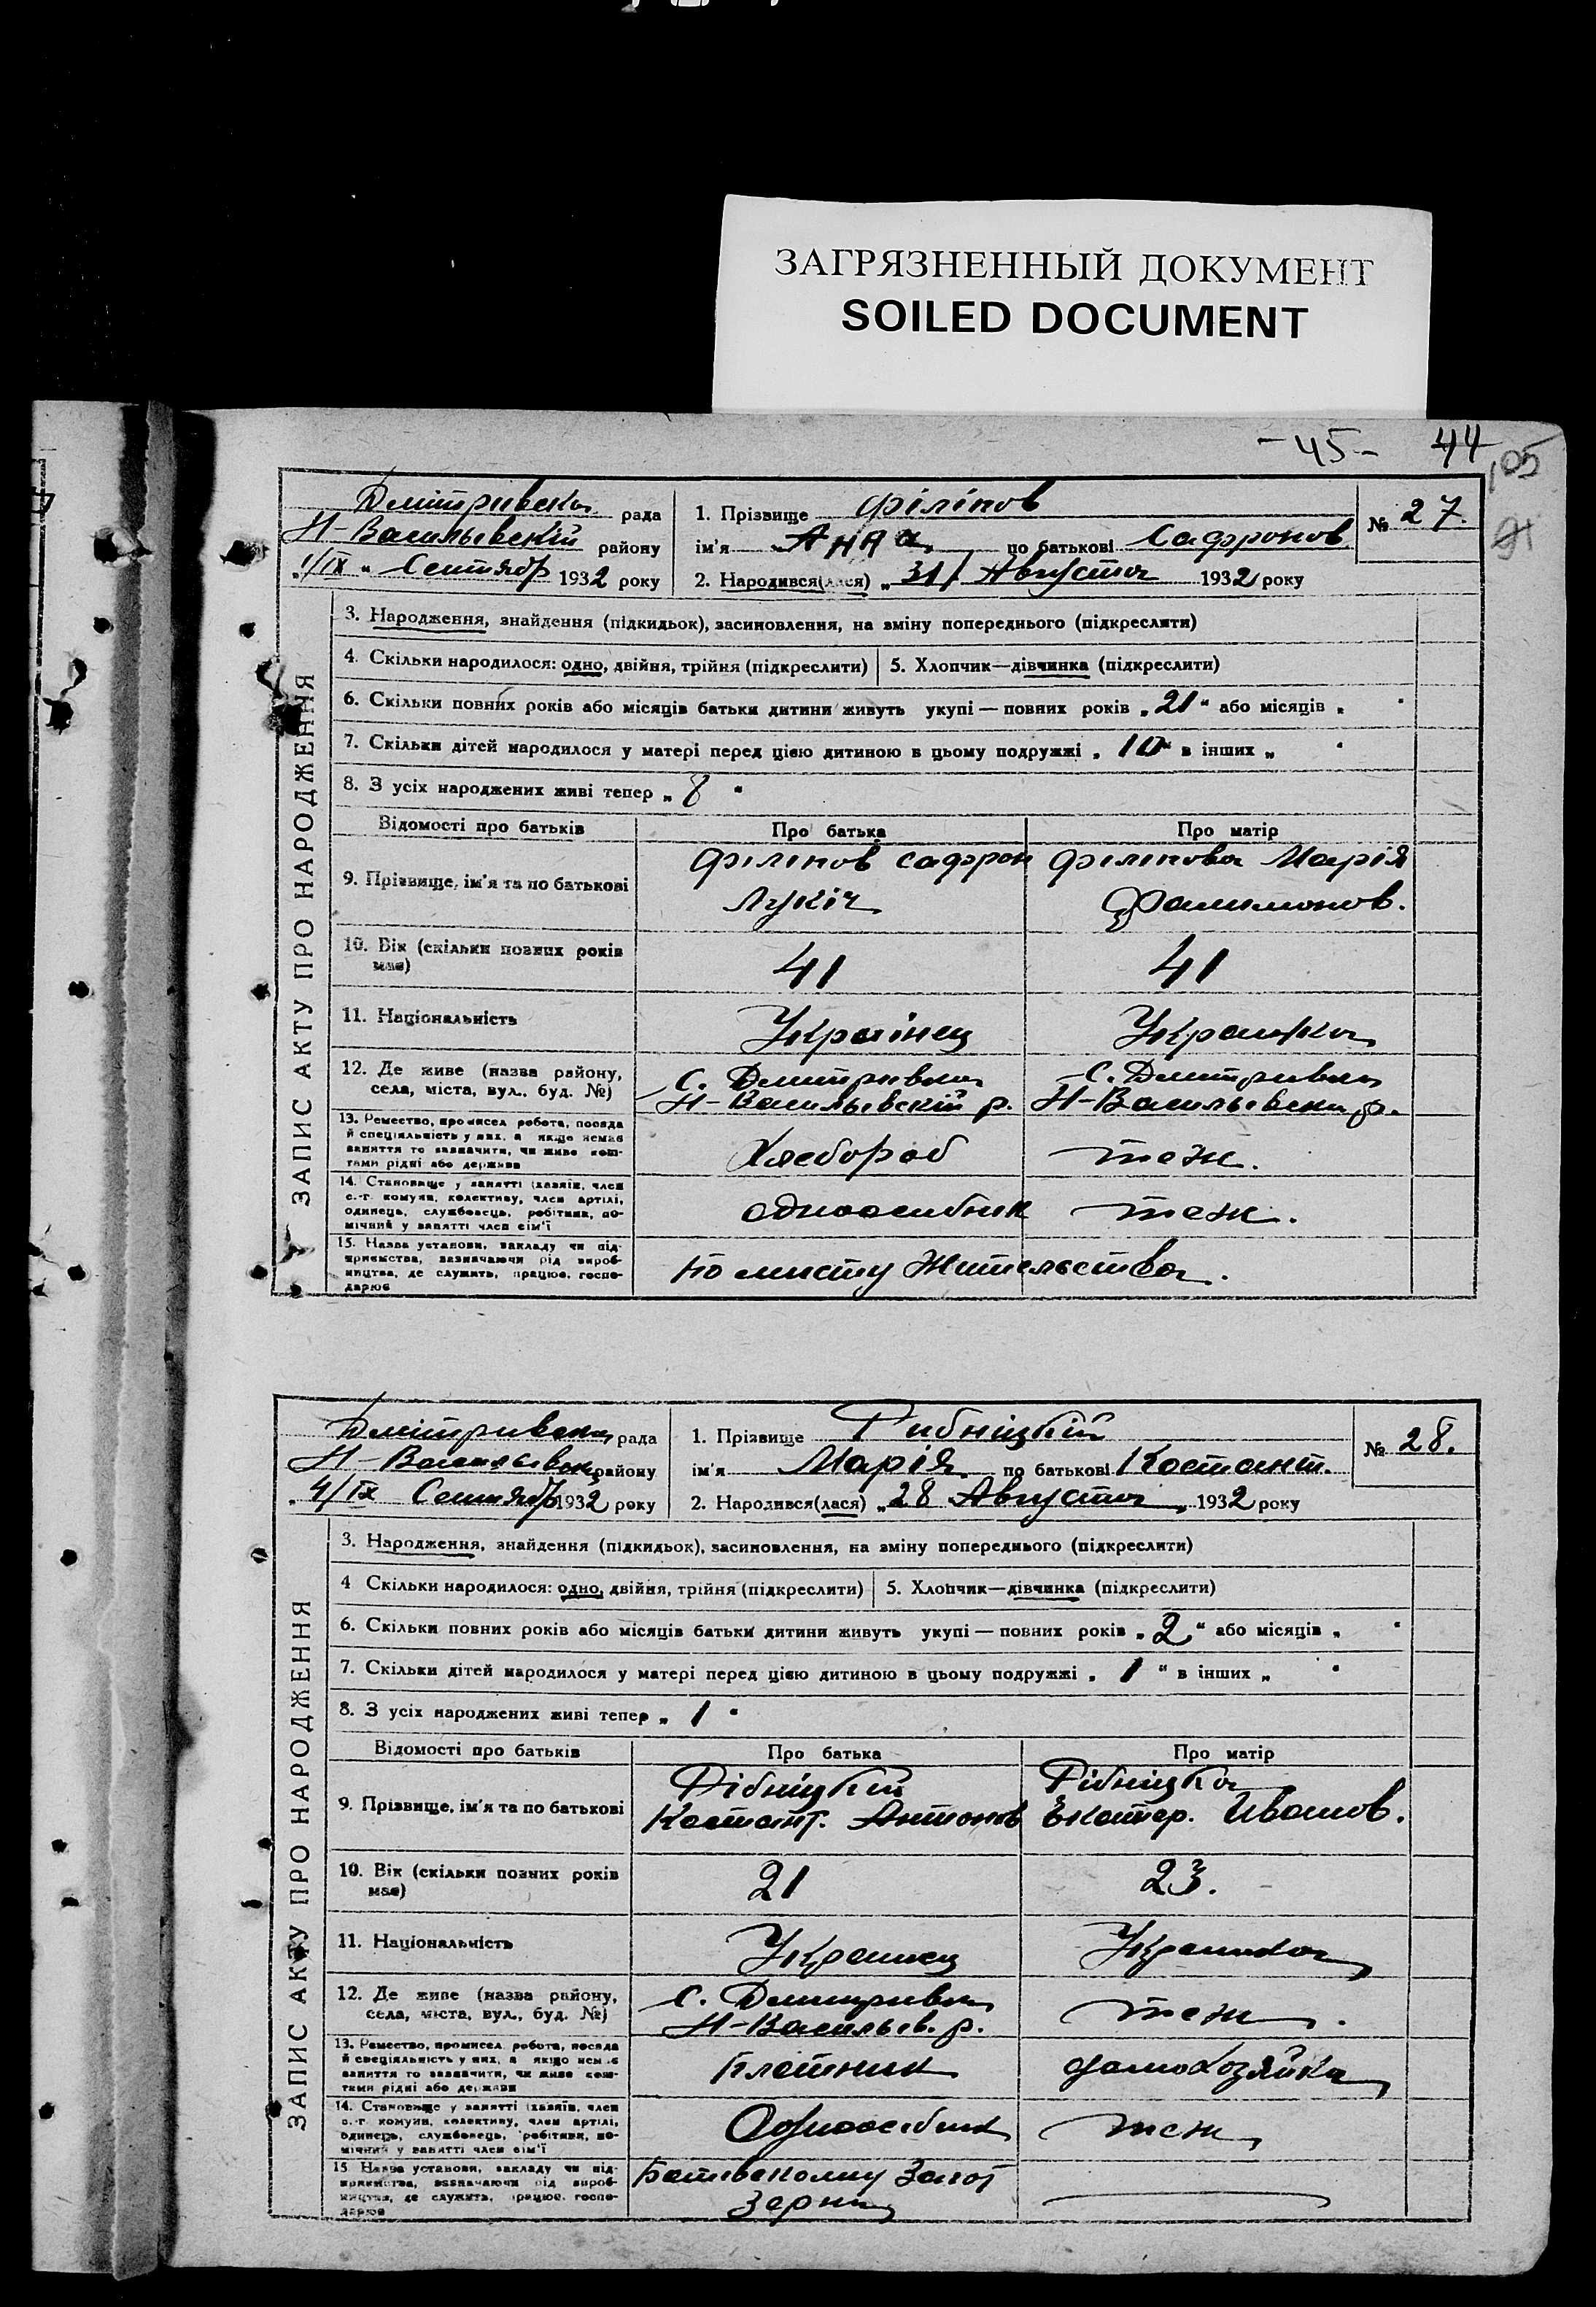 ЗАГРЯЗНЕННЫЙ ДОКУМЕНТ
SOILED DOCUMENT
-45- 44
105
Дмітрівска рада
Н-Васильевскій району
"1/IX" Сентябр 1932 року
1. Прізвище Філінов
ім'я Анна по батькові Сафронов
2. Народився(лася) "31/ Августа 1932 року
№ 27.
ЗАПИС АКТУ ПРО НАРОДЖЕННЯ
3. Народження, знайдення (підкидьок), засиновлення, на зміну попереднього (підкреслити)
4. Скільки народилося: одно, двійня, трійня (підкреслити) 5. Хлопчик—дівчинка (підкреслити)
6. Скільки повних років або місяців батьки дитини живуть укупі — повних років „21" або місяців „ "
7. Скільки дітей народилося у матері перед цією дитиною в цьому подружжі „10" в інших „ "
8. З усіх народжених живі тепер „8"
Відомості про батьків Про батька Про матір
9. Прізвище, ім'я та по батькові
Філінов Сафрон
Лукіч
Філінова Марія
Филимонов.
10. Вік (скільки повних років
має)
41 41
11. Національність Українец Украінка
12. Де живе (назва району,
села, міста, вул., буд. №)
С. Дмитривка
Н-Васильевскій р.
С. Дмитривка
Н-Васильевски р.
13. Ремество, промисел робота, посада
й спеціяльність у них, а якщо немає
заняття то зазначити, чи живе кош-
тами рідні або держави
Хлебороб теж.
14. Становище у занятті (хазяїн, член
с.-г. комуни, колективу, член артілі,
одинець, службовець, робітник, по-
мічний у занятті член сім'ї
одноосибник теж.
15. Назва установи, закладу чи під-
приємства, зазначаючи рід вироб-
ництва, де служить, працює, госпо-
дарює
по мисту Жительства.
Дмітривска рада
Н-Васильевск району
"4/IX Сентябр 1932 року
1. Прізвище Рибніцкій
ім'я Марія по батькові Костант.
2. Народився(лася) "28 Августа" 1932 року
№ 28.
ЗАПИС АКТУ ПРО НАРОДЖЕННЯ
3. Народження, знайдення (підкидьок), засиновлення, на зміну попереднього (підкреслити)
4 Скільки народилося: одно, двійня, трійня (підкреслити) 5. Хлопчик—дівчинка (підкреслити)
6. Скільки повних років або місяців батьки дитини живуть укупі — повних років „2" або місяців „ "
7. Скільки дітей народилося у матері перед цією дитиною в цьому подружжі „1" в інших „ "
8. З усіх народжених живі тепер „1"
Відомості про батьків Про батька Про матір
9. Прізвище, ім'я та по батькові
Рібніцкий
Костант. Антонов
Рібніцка
Екатер. Иванов.
10. Вік (скільки повних років
має)
21 23.
11. Національність Украинец Украинка
12. Де живе (назва району,
села, міста, вул., буд. №)
С. Дмитривка
Н-Васильев. р.
теж.
13. Ремество, промисел робота, посада
й спеціяльність у них, а якщо немає
заняття то зазначити, чи живе кош-
тами рідні або держави
Плотник домохозяйка
14. Становище у занятті (хазяїн, член
с.-г. комуни, колективу, член артілі,
одинець, службовець, робітник, по-
мічний у занятті член сім'ї
Одноосебник теж
15 Назва установи, закладу чи під-
приємства, зазначаючи рід вироб-
ництва, де служить, працює, госпо-
дарює
Загот
Зерна